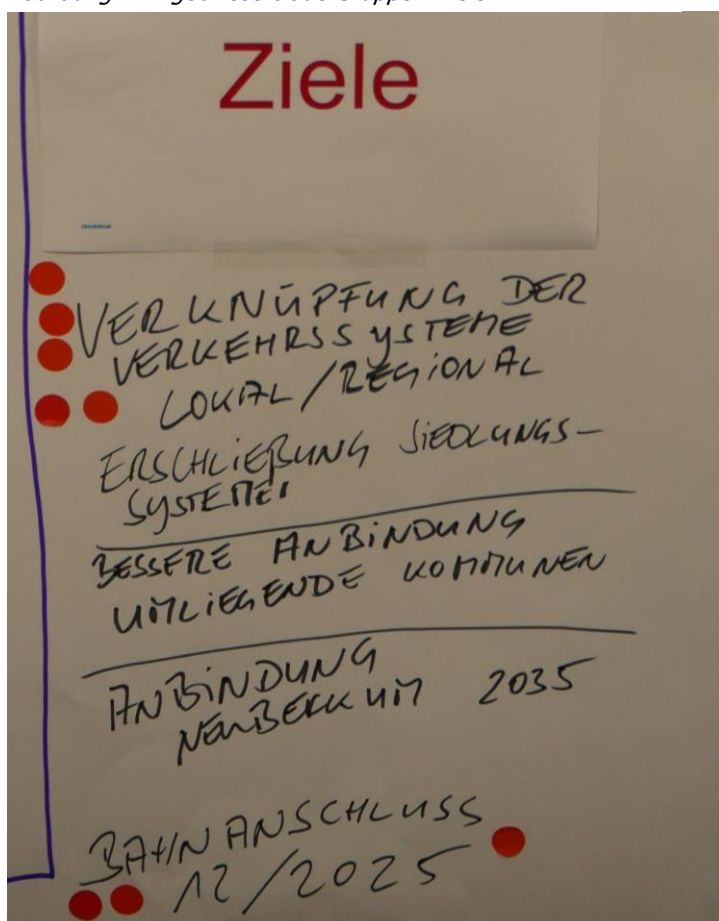 Ziele
VERKNÜPFUNG DER
VERKEHRSSYSTEME
LOKAL/REGIONAL
ERSCHLIEßUNG SIEDLUNGS-
SYSTEME
BESSERE ANBINDUNG
UMLIEGENDE KOMMUNEN
ANBINDUNG
NEUBECKUM 2035
BAHNANSCHLUSS
12/2025